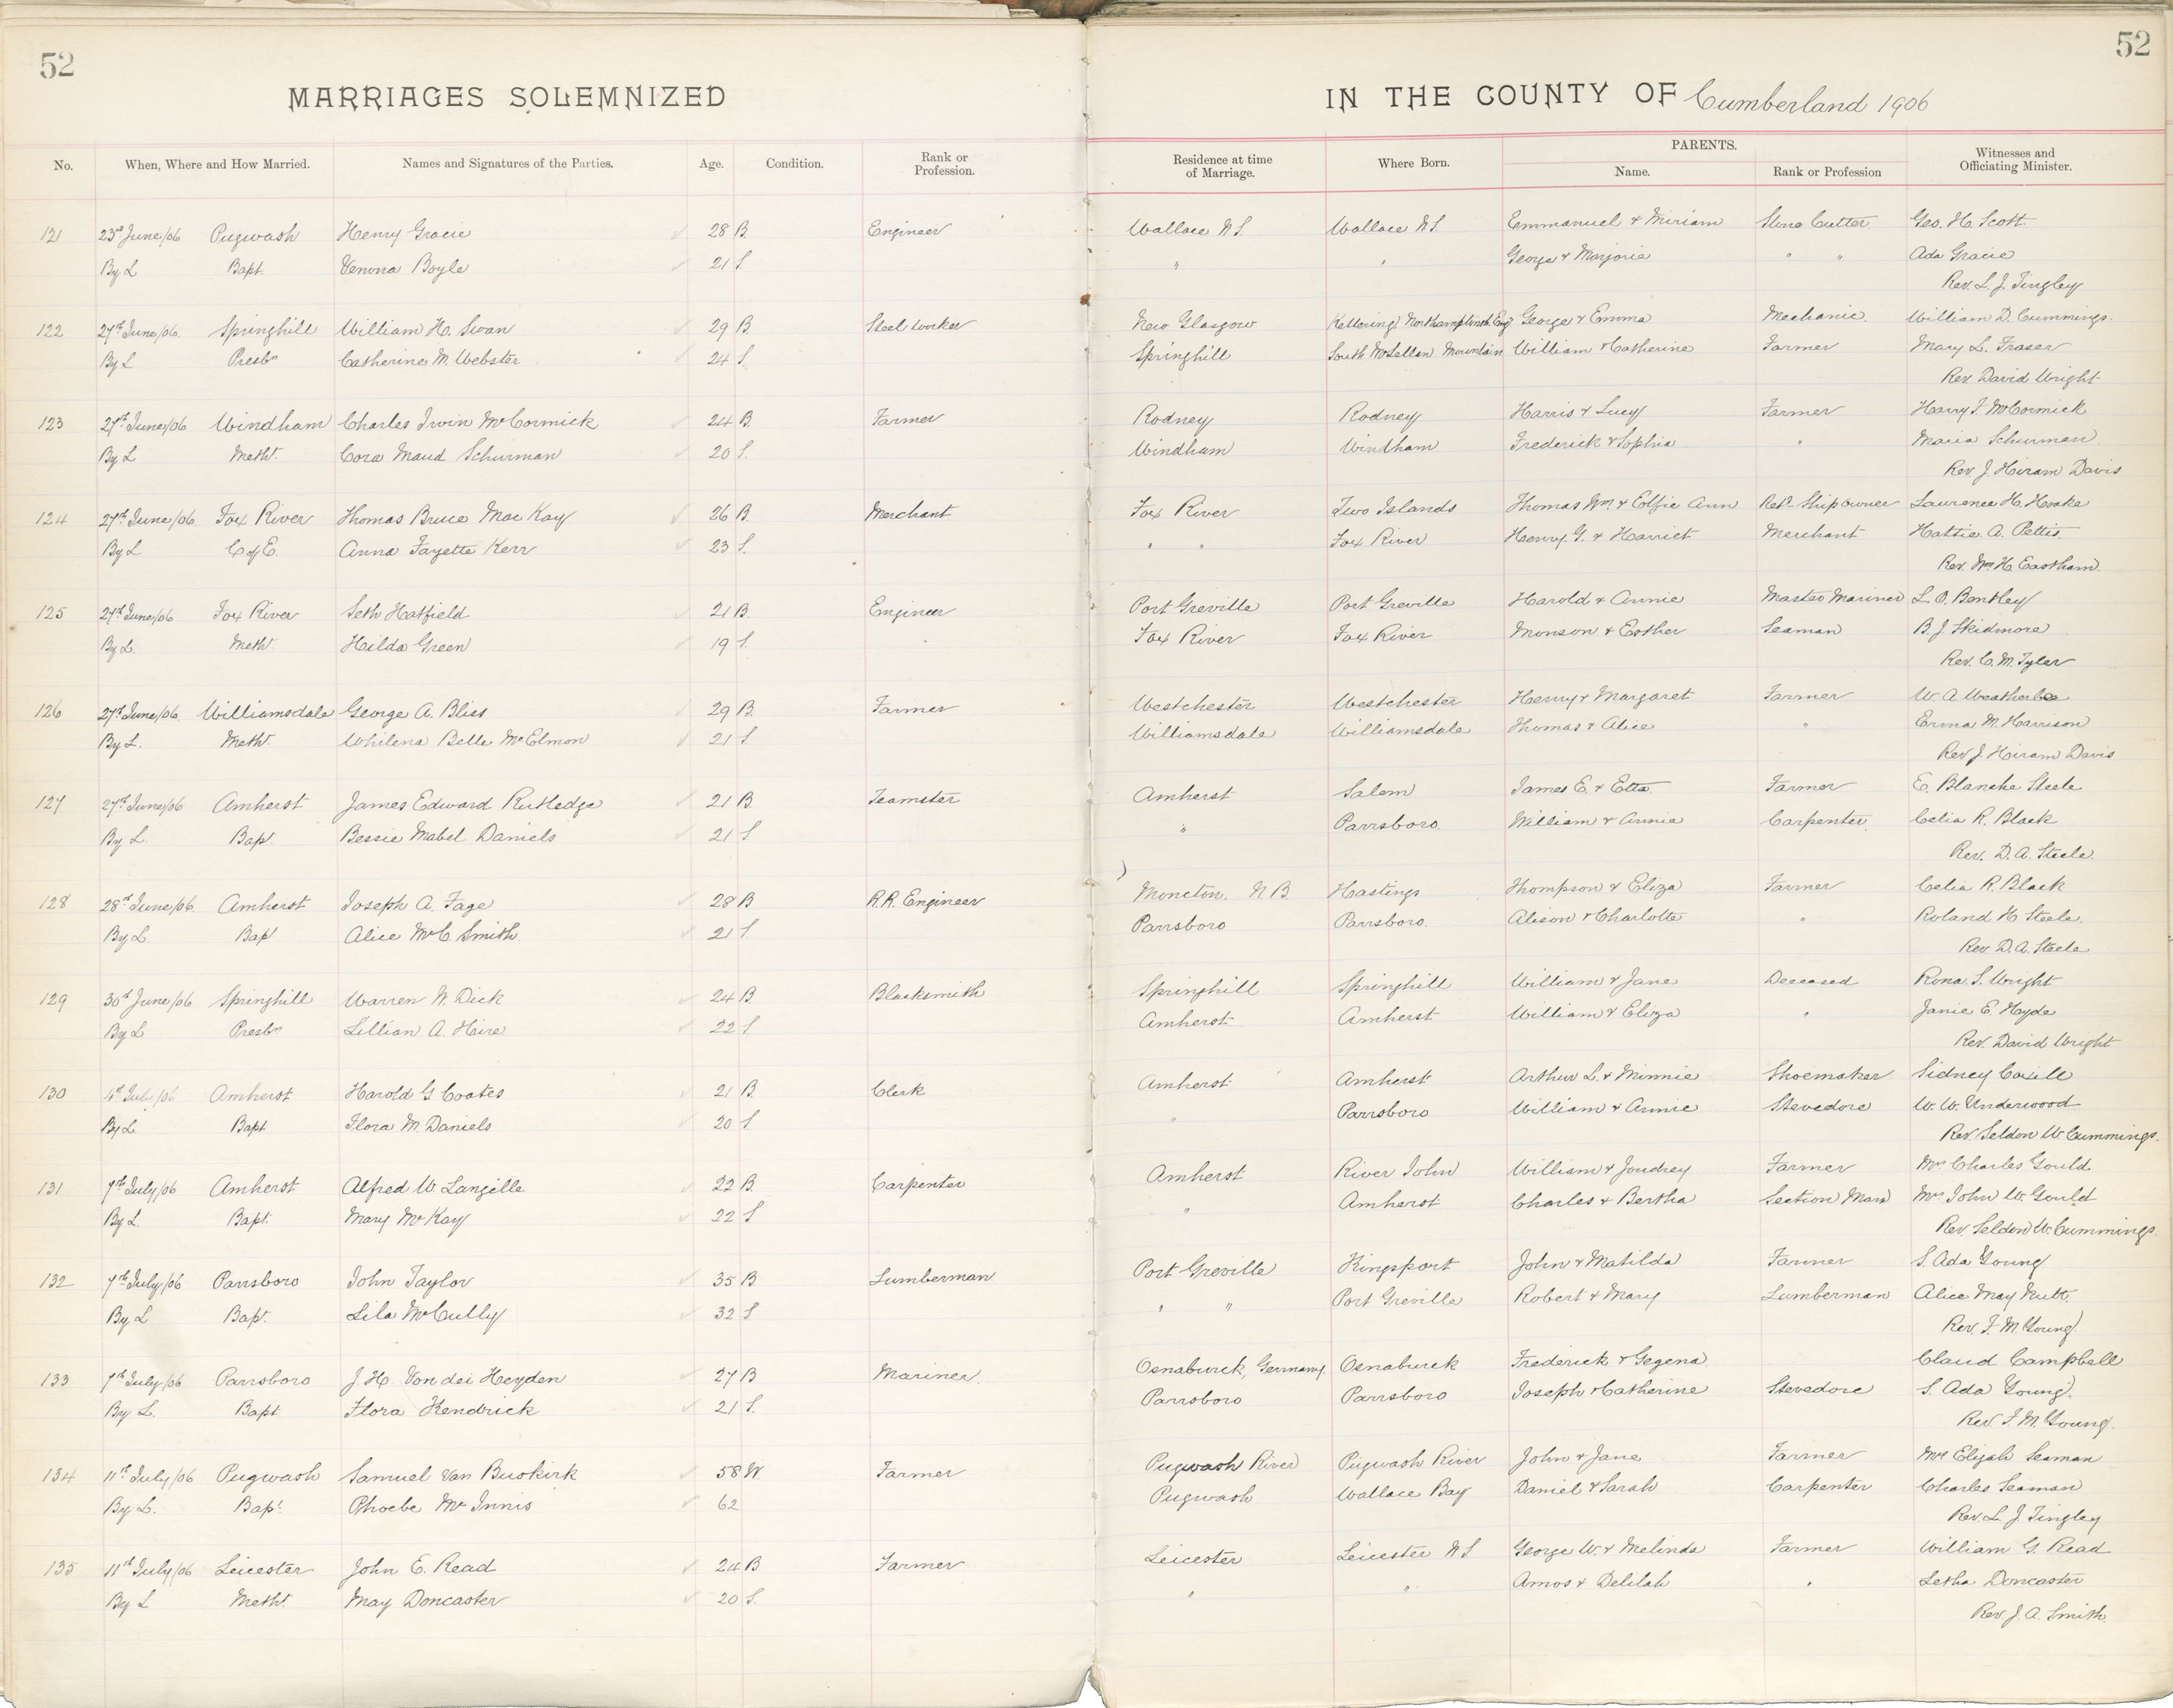 52
52
MARRIAGES SOLEMNIZED
IN THE COUNTY OF Cumberland 1906
No. When, Where and How Married. Names and Signatures of the Parties. Age. Condition. Rank or Profession. Residence at time of Marriage. Where Born. PARENTS. Name. Rank or Profession Witnesses and Officiating Minister.
121 23rd June/06 Pugwash Henry Gracie 28 B. Engineer Wallace N.S. Wallace N.S. Emmanuel & Miriam Stone Cutter Geo. H. Scott
By L Bapt. Venona Boyle 21 S. " " George & Marjorie " " Ada Gracie
Rev. L. J. Tingley
122 27th June/06 Springhill William H. Swan 29 B. Steel worker New Glasgow Kettering Northamptonsh. Eng. George & Emma Mechanic William D. Cummings.
By L Presbn Catherine M. Webster 24 S. Springhill South McLellan Mountain William & Catherine Farmer Mary L. Fraser
Rev. David Wright
123 27th June/06 Windham Charles Irvin McCormick 24 B. Farmer Rodney Rodney Harris & Lucy Farmer Harry F. McCormick
By L Meth. Cora Maud Schurman 20 S. Windham Windham Frederick & Sophia " Maria Schurman
Rev J. Hiram Davis
124 27th June/06 Fox River Thomas Bruce MacKay 26 B. Merchant Fox River Two Islands Thomas Wm. & Ann Retd. Ship owner Laurence H. Hoake
By L C of E. Anna Fayette Kerr 23 S. " " Fox River Henry G. & Harriet Merchant Hattie A. Pettis.
Rev. Wm. H. Eastham
125 27th June/06 Fox River Seth Hatfield 21 B. Engineer Port Greville Port Greville Harold & Annie Master Mariner L. O. Bentley
By L. Meth. Hilda Green 19 S. Fox River Fox River Monson & Esther Seaman B. J. Skidmore
Rev. C. M. Tyler
126 27th June/06 Williamsdale George A. Bliss 29 B. Farmer Westchester Westchester Henry & Margaret Farmer W. A. Weatherbee
By L. Meth. Whilena Belle McElmon 21 S Williamsdale Williamsdale Thomas & Alice " Erma M. Harrison
Rev J. Hiram Davis
127 27th June/06 Amherst James Edward Rutledge 21 B. Teamster Amherst Salem James E. & Etta Farmer E. Blanche Steele
By L. Bap. Bessie Mabel Daniels 21 S " Parrsboro. William & Annie Carpenter Celia R. Black
Rev. D. A. Steele.
128 28th June/06. Amherst Joseph A. Fage 28 B R.R. Engineer Moncton. N.B. Hastings Thompson & Eliza Farmer Celia R. Black
By L. Bap Alice McC. Smith 21 S. Parrsboro Parrsboro. Alison & Charlotte " Roland H. Steele.
Rev. D. A. Steele
129 30th June/06 Springhill Warren N. Dick 24 B Blacksmith Springhill Springhill William & Jane Deceased Rona. S. Wright
By L Presbn Lillian A. Hire 22 S. Amherst Amherst William & Eliza " Janie E. Hyde
Rev. David Wright
130 4th July/06 Amherst Harold G Coates 21 B. Clerk Amherst Amherst Arthur L. & Minnie Shoemaker Sidney
By L Bapt Flora M. Daniels 20 S. " Parrsboro William & Annie Stevedore W. W. Underwood
Rev. Seldon W. Cummings.
131 7th July/06 Amherst Alfred W. Langille 22 B. Carpenter Amherst River John William & Joudrey Farmer Mrs Charles Gould
By L. Bapt. Mary McKay 22 S " Amherst Charles & Bertha Section Man Mrs John W. Gould
Rev. Seldon W. Cummings.
132 7th July/06 Parrsboro John Taylor 35 B Lumberman Port Greville Kingsport John & Matilda Farmer S. Ada Young
By L Bapt. Lila McCully 32 S " " Port Greville Robert & Mary Lumberman Alice May Nutt.
Rev. F. M. Young
133 7th July/06 Parrsboro J. H. Von dei Heyden 27 B Mariner. Osnaburck, Germany. Osnaburck Frederick & Gegena. Claud Campbell
By L. Bapt Flora Kendrick 21 S. Parrsboro Parrsboro Joseph & Catherine Stevedore S. Ada Young.
Rev. F. M. Young.
134 11th July/06 Pugwash Samuel Van Buskirk 58 W. Farmer Pugwash River Pugwash River John & Jane Farmer Mrs Elijah Seaman
By L. Bap. Phoebe McInnis 62 Pugwash Wallace Bay Daniel & Sarah Carpenter Charles Seaman
Rev. L. J. Tingley
135 11th July/06 Leicester John E. Read 24 B Farmer Leicester Leicester N.S George W. & Melinda Farmer William G. Read
By L Meth. May Doncaster 20 S. " " Amos & Delilah " Letha Doncaster
Rev. J. A. Smith.